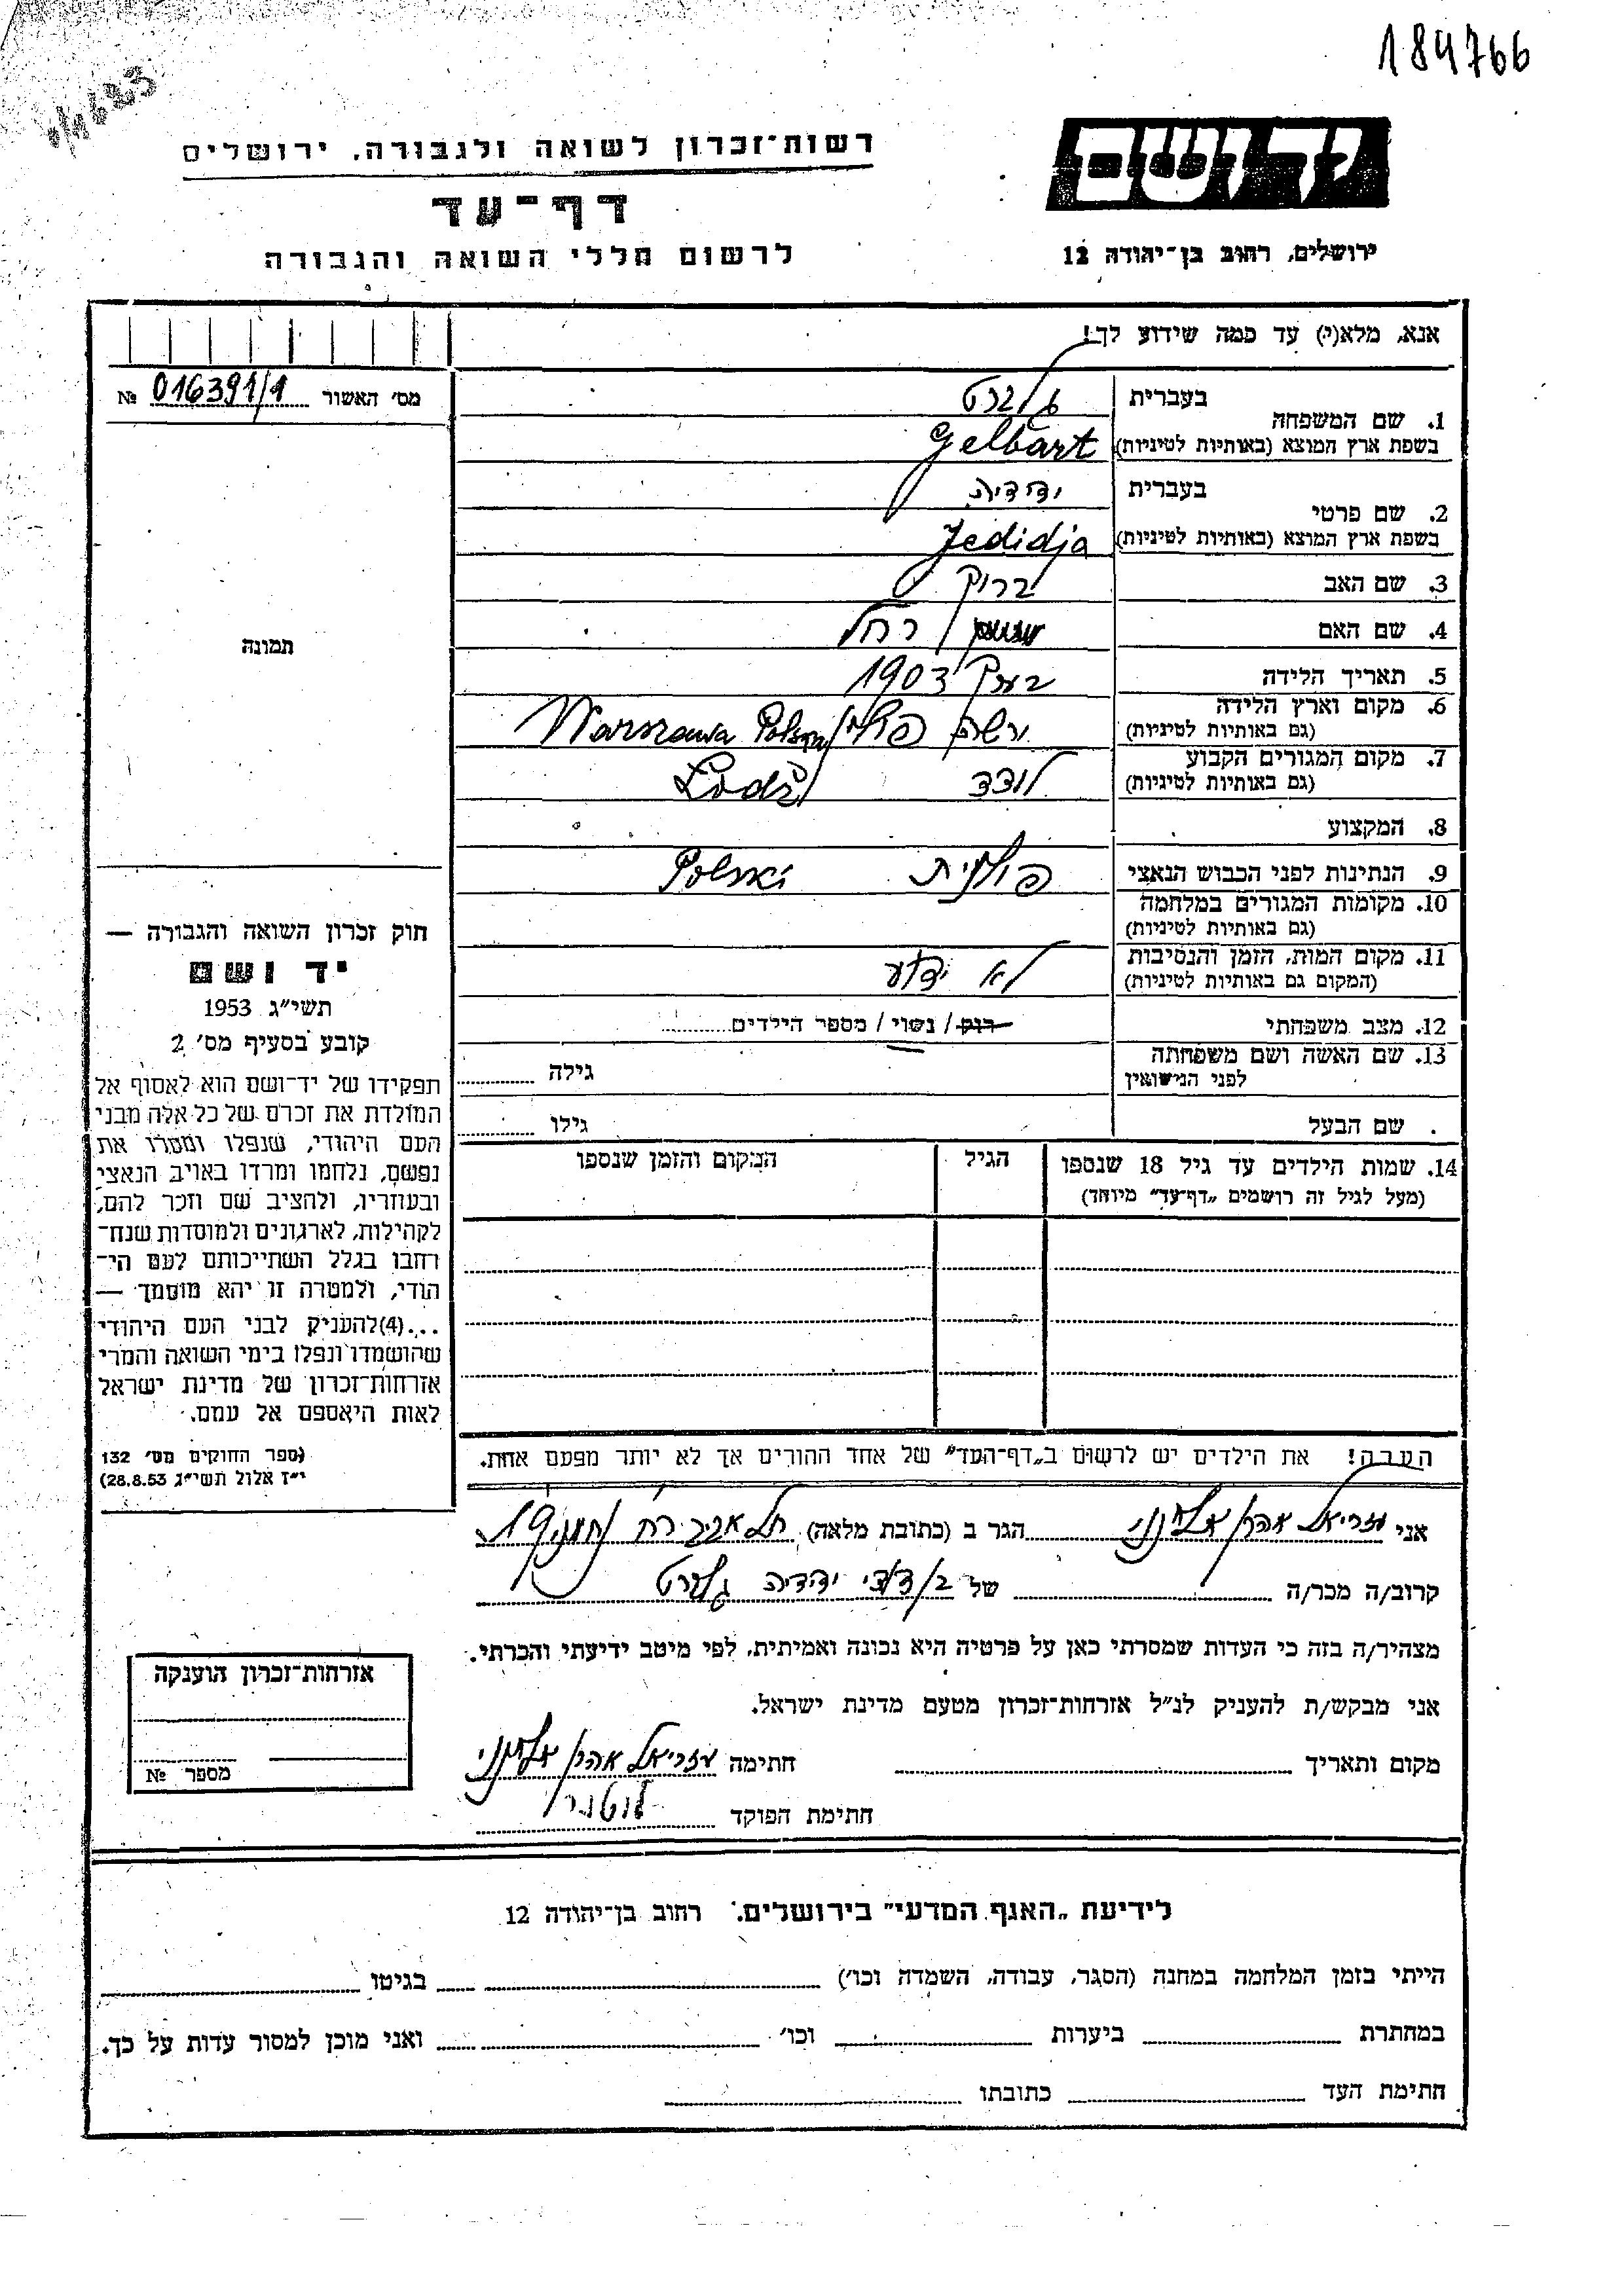 184766
רשות־זכרון לשואה ולגבורה, ירושלים
יד ושם
דף־עד
לרשום חללי השואה והגבורה
ירושלים, רחוב בן־יהודה 12
אנא, מלא(י) עד כמה שידוע לך!
מס׳ האשור 016391/1 №
1. שם המשפחה
בעברית גלברט
בשפת ארץ המוצא (באותיות לטיניות) Gelbart
2. שם פרטי
בעברית ידידיה
בשפת ארץ המוצא (באותיות לטיניות) Jedidja
3. שם האב ברוך
4. שם האם רחל
5. תאריך הלידה בערך 1903
6. מקום וארץ הלידה
(גם באותיות לטיניות) ורשה פולין Warszawa
7. מקום המגורים הקבוע
(גם באותיות לטיניות) לודז Łódź
8. המקצוע
9. הנתינות לפני הכבוש הנאצי פולנית Polski
10. מקומות המגורים במלחמה
(גם באותיות לטיניות)
11. מקום המות, הזמן והנסיבות
(המקום גם באותיות לטיניות) לא ידוע
12. מצב משפחתי רוק / נשוי / מספר הילדים
13. שם האשה ושם משפחתה
לפני הנישואין גילה
. שם הבעל גילו
14. שמות הילדים עד גיל 18 שנספו
(מעל לגיל זה רושמים „דף־עד״ מיוחד)
הגיל
המקום והזמן שנספו
תמונה
חוק זכרון השואה והגבורה —
יד ושם
תשי״ג 1953
קובע בסעיף מס׳ 2
תפקידו של יד־ושם הוא לאסוף אל
המולדת את זכרם של כל אלה מבני
העם היהודי, שנפלו ומסרו את
נפשם, נלחמו ומרדו באויב הנאצי
ובעוזריו, ולהציב שם וזכר להם,
לקהילות, לארגונים ולמוסדות שנח־
רחבו בגלל השתייכותם לעם הי־
הודי, ולמטרה זו יהא מוסמך —
...(4)להעניק לבני העם היהודי
שהושמדו ונפלו בימי השואה והמרי
אזרחות־זכרון של מדינת ישראל
לאות היאספם אל עמם.
(ספר החוקים מס׳ 132
י״ז אלול תשי״ג 28.8.53)
הערה! את הילדים יש לרשום ב„דף־העד״ של אחד ההורים אך לא יותר מפעם אחת.
אני עזריאל אהרן הגר ב (כתובת מלאה) תל אביב רח 19
קרוב/ה מכר/ה של ידידיה גלברט
מצהיר/ה בזה כי העדות שמסרתי כאן על פרטיה היא נכונה ואמיתית, לפי מיטב ידיעתי והכרתי.
אני מבקש/ת להעניק לנ״ל אזרחות־זכרון מטעם מדינת ישראל.
מקום ותאריך חתימה עזריאל אהרן
חתימת הפוקד
אזרחות־זכרון הוענקה
מספר №
לידיעת „האגף המדעי״ בירושלים. רחוב בן־יהודה 12
הייתי בזמן המלחמה במחנה (הסגר, עבודה, השמדה וכו׳) בגיטו
במחתרת ביערות וכו׳ ואני מוכן למסור עדות על כך.
חתימת העד כתובתו